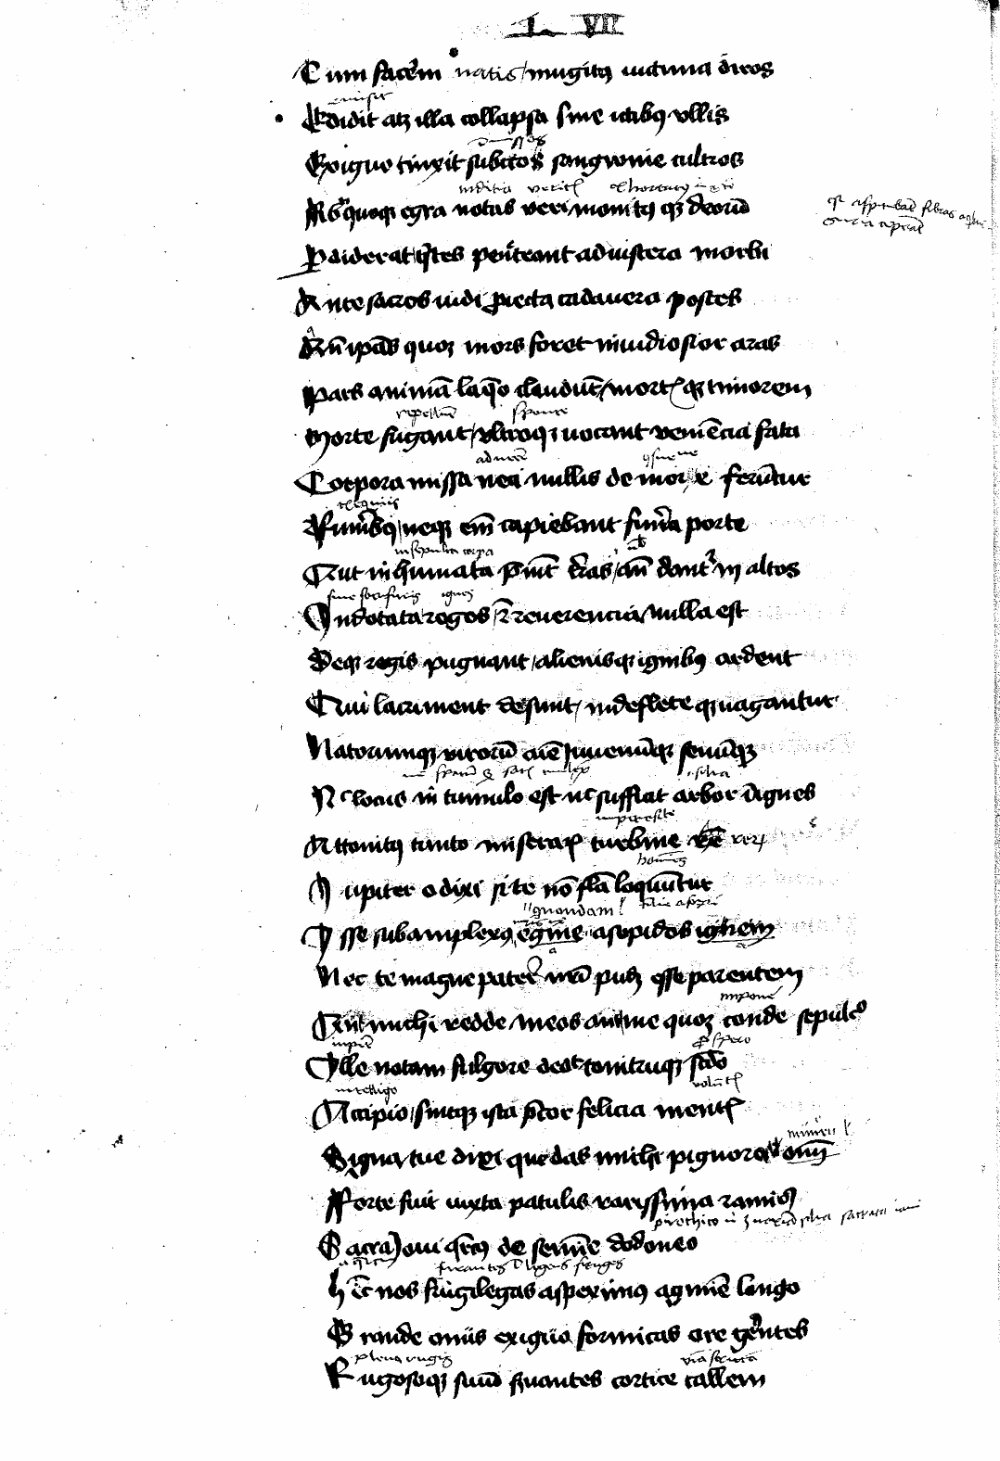 L VII
Cum facerem natis mugitus victima diros
emisit
Edidit atq illa collapsa sine ictibus ullis
Exiguo tinxit subiectos sanguine cultros
indicia veritatis
Fibra quoque egra notas veri monitusque deorum
Perdiderat tristes penetrant ad viscera morbi
Ante sacros vidi proiecta cadavera postes
Ante ipsas quoque mors foret invidiosior aras
Pars animam laqueo claudunt mortisque timorem
sponte
Morte fugant ultroque vocant veniencia fata
Corpora missa neci nullis de more feruntur
Funeribus neque enim capiebant funera porte
inhumata corpora
Aut inhumata premunt terras aut dantur in altos
ignes
Indotata rogos et iam reverencia nulla est
Deque rogis pugnant alienisque ignibus ardent
Qui lacriment desunt indefleteque vagantur
Natorumque virorumque anime iuvenumque senumque
silva
Nec locus in tumulo est nec sufficit arbor in ignes
Attonitus tanto miserarum turbine rerum
Iupiter o dixi si te non falsa loquuntur
quondam
Isse sub amplexus egine asopidos
Nec te magne pater nostri pudet esse parentem
impone
Aut michi redde meos aut me quoque conde sepulcro
Ille notam fulgore dedit tonitruque secundo
intelligo
Accipio sintque ista precor felicia mentis
Signa tue dixi que das michi pignora omen
Forte fuit iuxta patulis rarissima ramis
Sacra Iovi quercus de semine dodoneo
Hic nos frugilegas aspeximus agmine longo
Grande onus exiguo formicas ore gerentes
plena rugis
Rugosoque suum servantes cortice callem